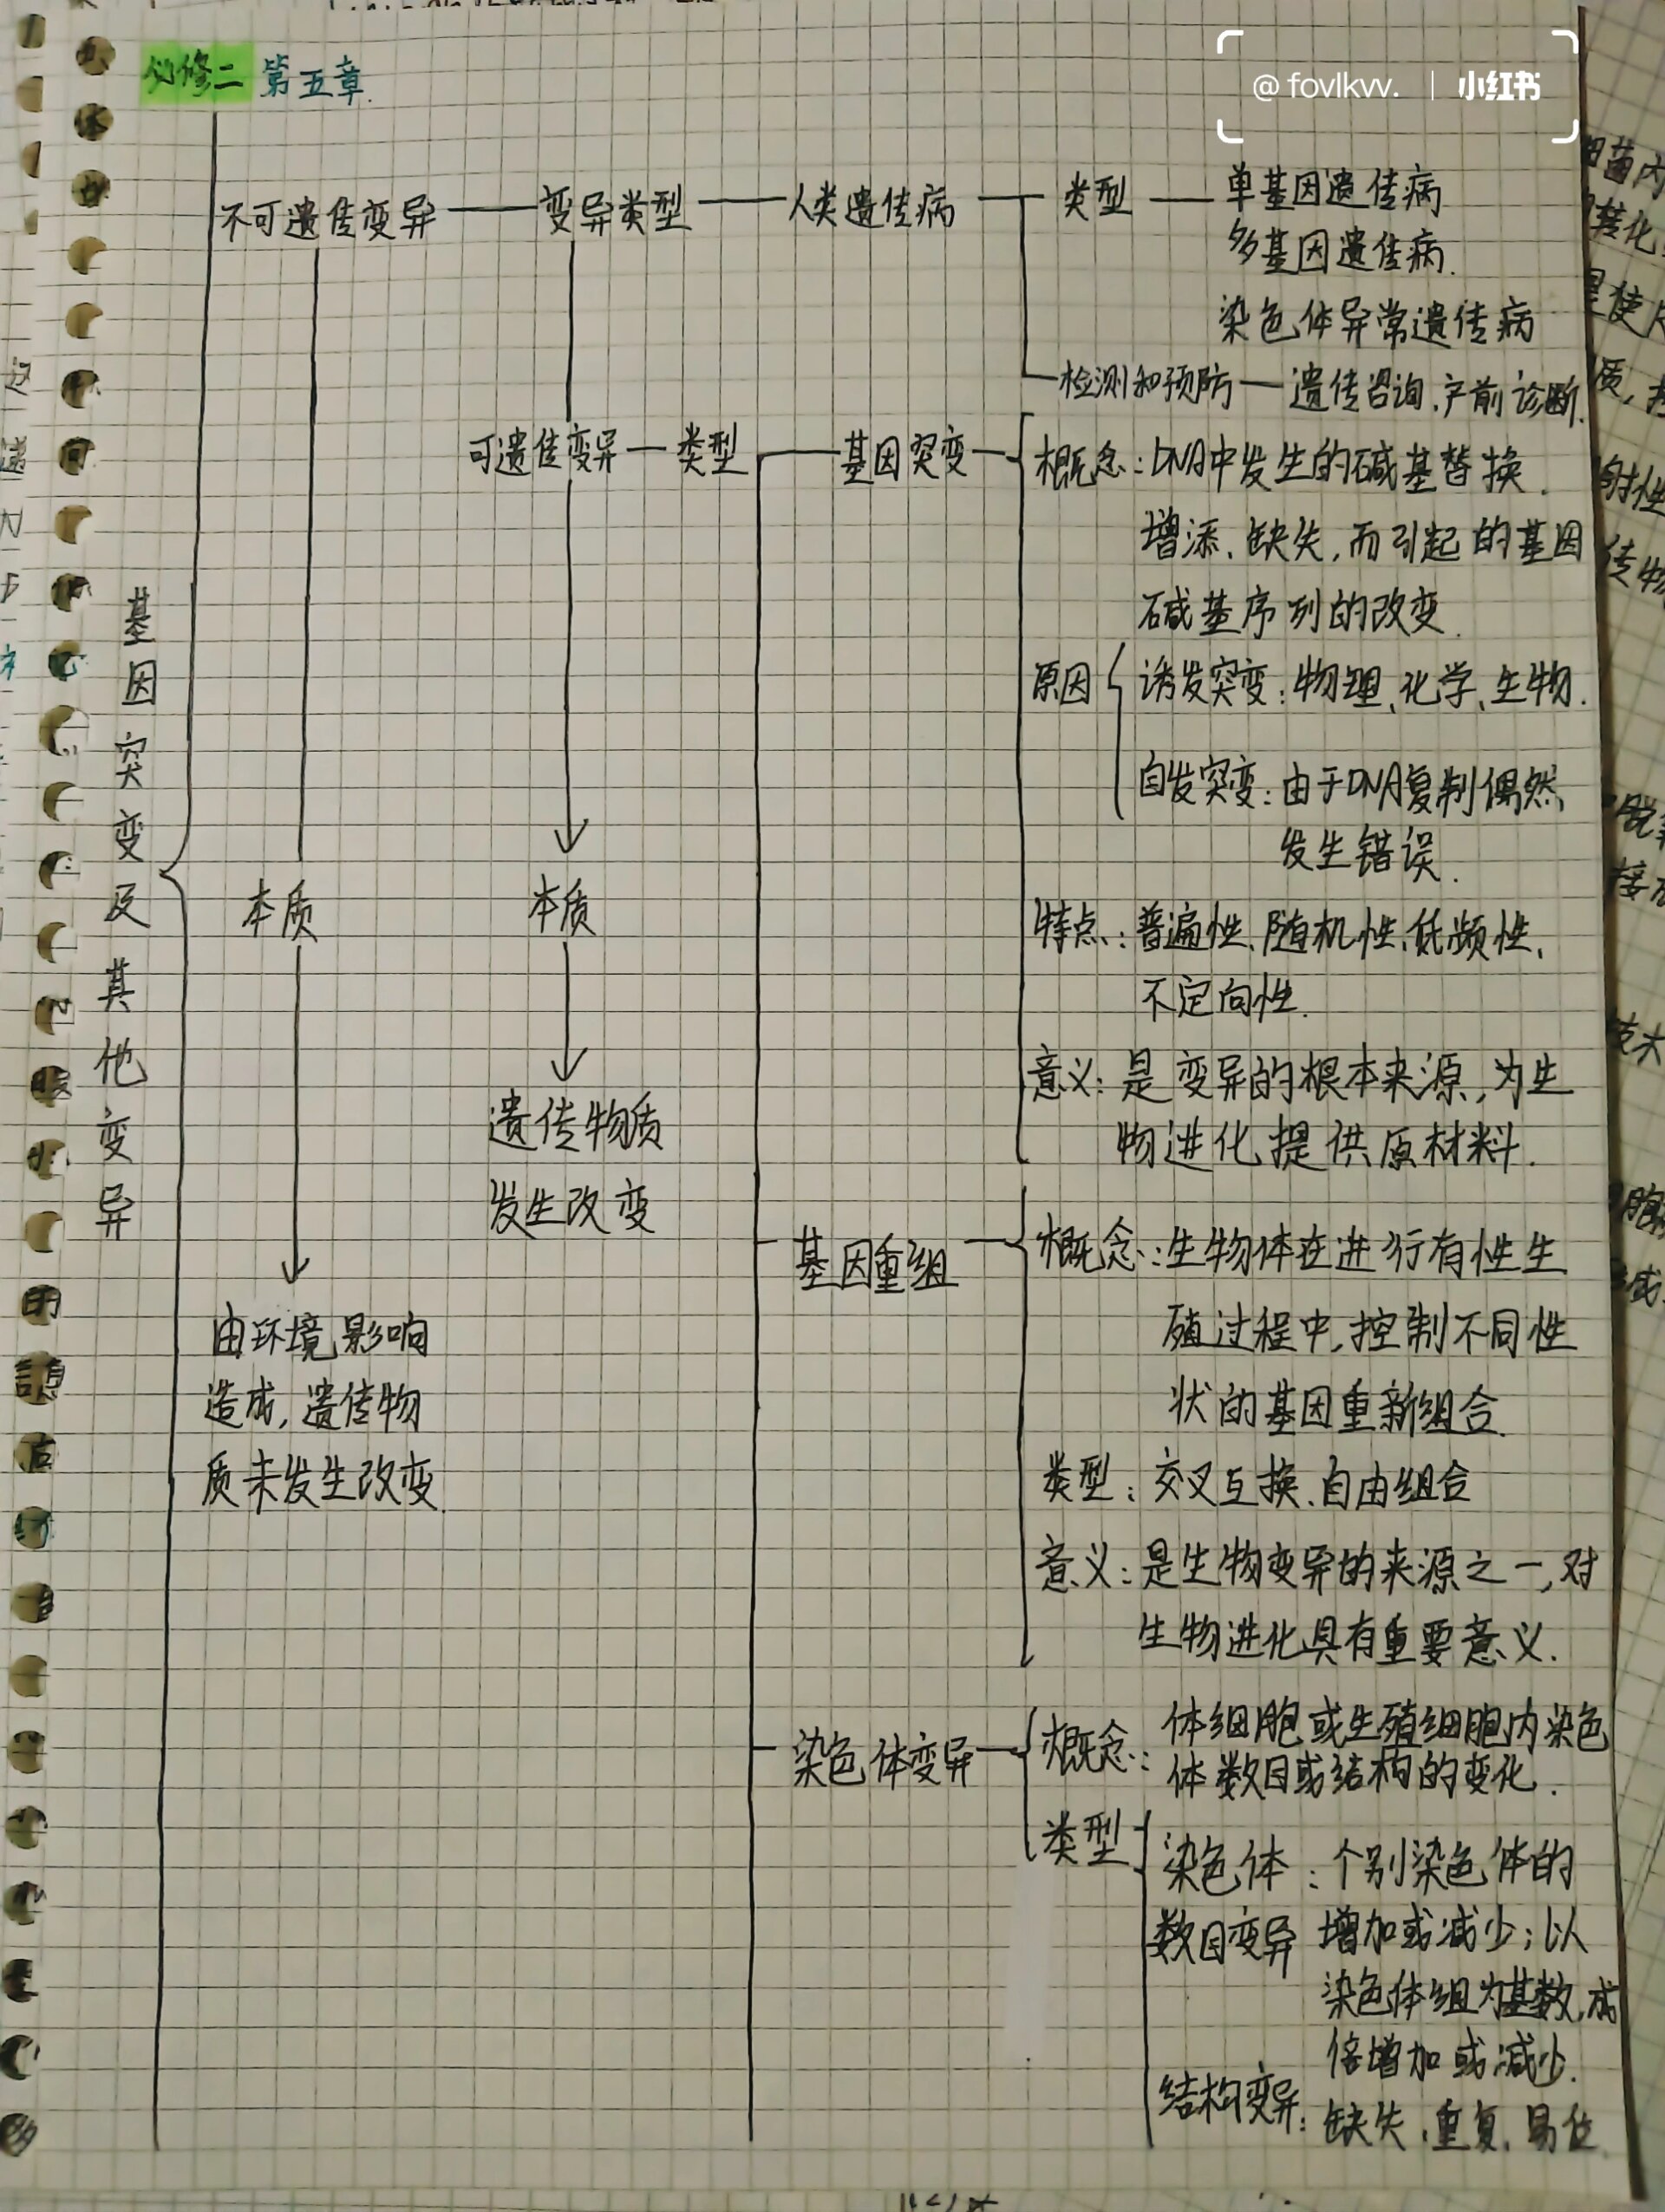 必修二 第五章.
@ fovlkvv. | 小红书
基因突变及其他变异
不可遗传变异 — 变异类型 — 人类遗传病 — 类型 — 单基因遗传病
多基因遗传病.
染色体异常遗传病
检测和预防 — 遗传咨询、产前诊断.
可遗传变异 — 类型 — 基因突变
概念:DNA中发生的碱基替换.
增添、缺失,而引起的基因
碱基序列的改变.
原因
诱发突变:物理、化学、生物.
自发突变:由于DNA复制偶然
发生错误.
特点:普遍性、随机性、低频性、
不定向性.
意义:是变异的根本来源,为生
物进化提供原材料.
本质
由环境影响
造成,遗传物
质未发生改变.
本质
遗传物质
发生改变
基因重组
概念:生物体在进行有性生
殖过程中,控制不同性
状的基因重新组合.
类型:交叉互换、自由组合
意义:是生物变异的来源之一,对
生物进化具有重要意义.
染色体变异
概念:体细胞或生殖细胞内染色
体数目或结构的变化.
类型
染色体
数目变异
:个别染色体的
增加或减少;以
染色体组为基数,成
倍增加或减少.
结构变异:缺失、重复、易位.